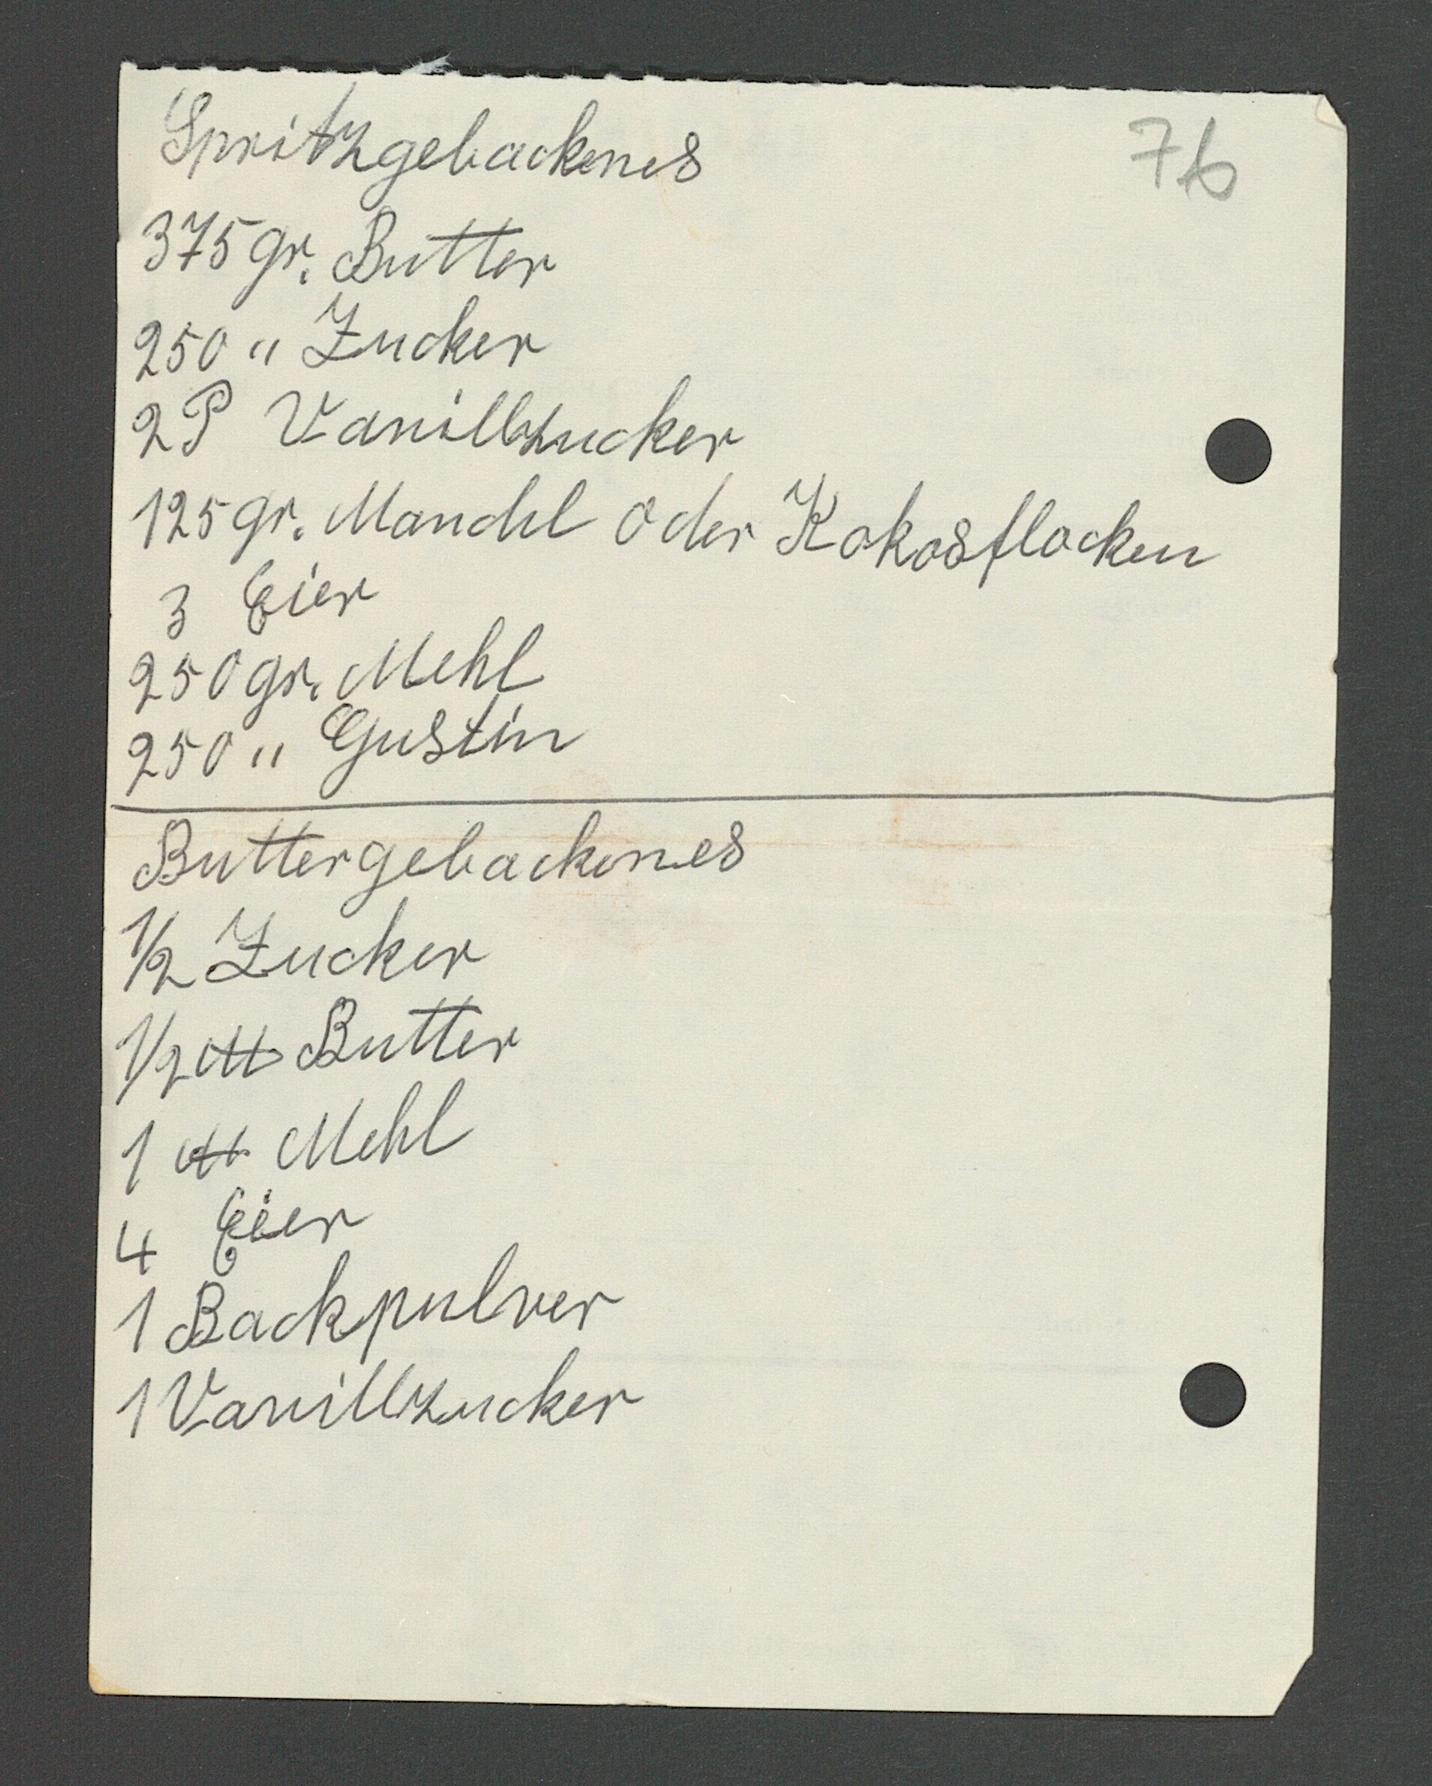 Spritzgebackenes
76
375 gr. Butter
250 " Zucker
2 P Vanillzucker
125 gr. Mandel oder Kokosflocken
3 Eier
250 gr. Mehl
250 " Gustin
Buttergebackenes
1/2 Zucker
1/2 ℔ Butter
1 ℔ Mehl
4 Eier
1 Backpulver
1 Vanillzucker